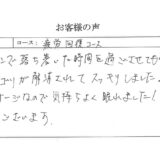 お客様の声
コース: 疲労回復コース
ンで落ち着いた時間を過ごさせてもら
コリが解消されてスッキリしました。
サージなので気持ちよく眠れました!
ございます。